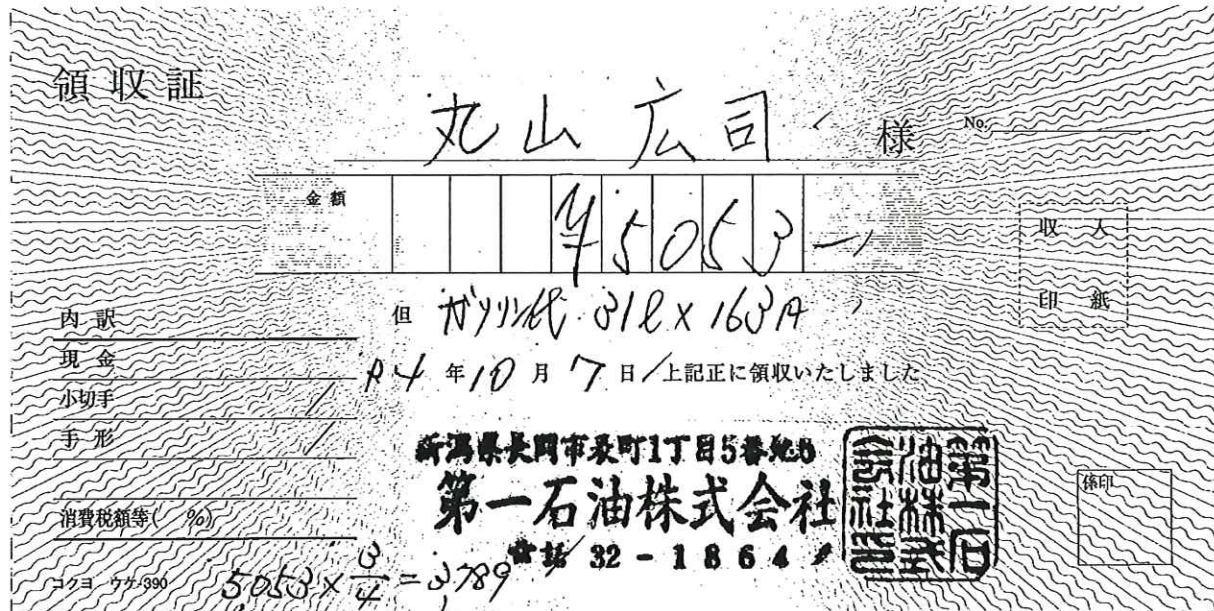 領収証
丸山 広司 様 No.
金額 ¥5053-
収入
印紙
但 ガソリン代 31ℓ×163円
内訳
現金
小切手
手形
R4年10月7日 上記正に領収いたしました
新潟県長岡市表町1丁目5番地6
第一石油株式会社
電話 32-1864
第一石
油株式
会社印
係印
消費税額等( %)
コクヨ ウケ-390
5053×3/4=3,789